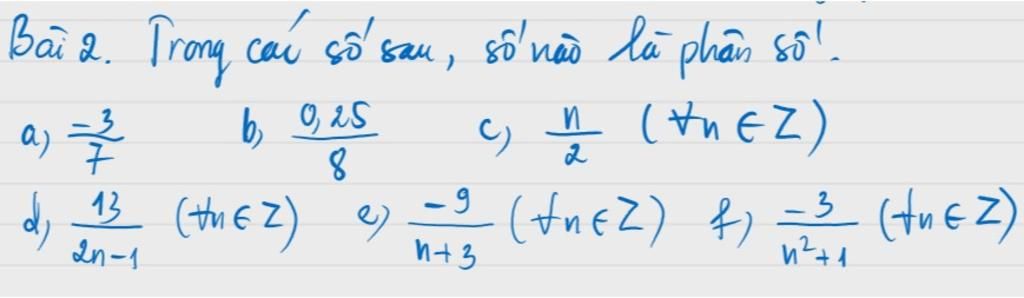 Bài 2. Trong các số sau, số nào là phân số.
a, -3/7 b, 0,25/8 c, n/2 (∀n ∈ Z)
d, 13/2n-1 (∀n ∈ Z) e) -9/n+3 (∀n ∈ Z) f) -3/n²+1 (∀n ∈ Z)